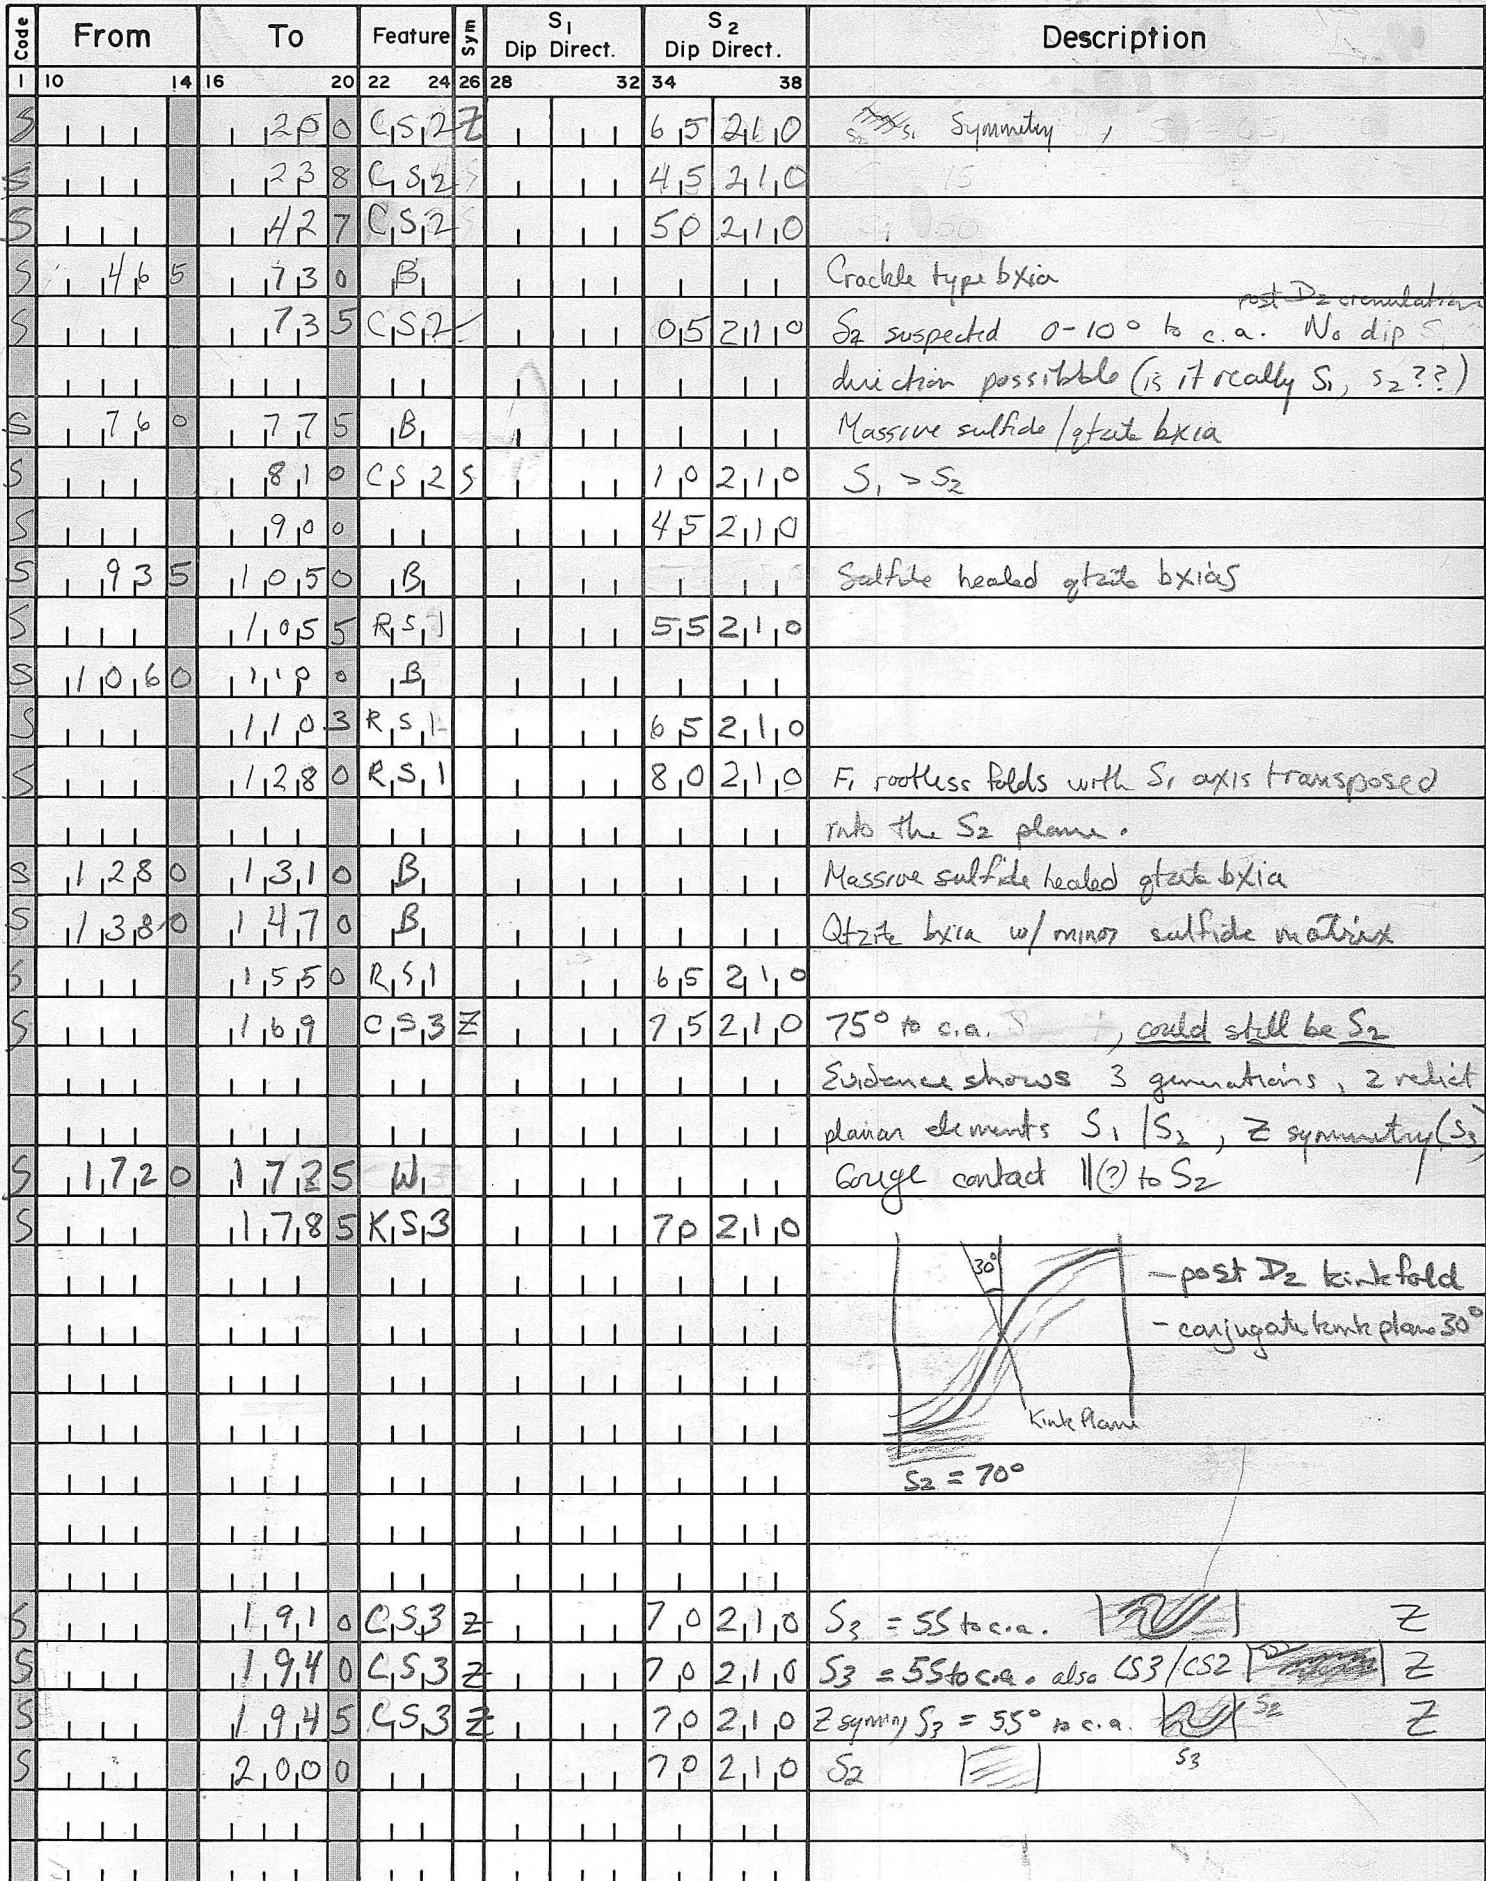 Code From To Feature Sym S1 Dip Direct. S2 Dip Direct. Description
1 10 14 16 20 22 24 26 28 32 34 38
S 250 CS2 Z 65 210 S2 S1 Symmetry ,
S 238 CS2 S 45 210 15
S 427 CS2 S 50 210
S 465 730 B Crackle type bxia
post D2 crenulation
S 735 CS2 05 210 S2 suspected 0-10° to c.a. No dip
direction possibble (is it really S1, S2??)
S 760 775 B Massive sulfide/qtzite bxia
S 810 CS2 S 10 210 S1 > S2
S 900 45 210
S 935 1050 B Sulfide healed qtzite bxias
S 1055 RS1 55 210
S 1060 1100 B
S 1103 RS1 65 210
S 1280 RS1 80 210 F1 rootless folds with S1 axis transposed
into the S2 plane.
S 1280 1310 B Massive sulfide healed qtzite bxia
S 1380 1470 B Qtzite bxia w/ minor sulfide matrix
S 1550 RS1 65 210
S 169 CS3 Z 75 210 75° to c.a. , could still be S2
Evidence shows 3 generations, 2 relict
planar elements S1/S2, Z symmetry (S3)
S 1720 1725 W Gouge contact ||(?) to S2
S 1785 KS3 70 210
30° - post D2 kink fold
- conjugate kink plane 30°
Kink Plane
S2 = 70°
S 1910 CS3 Z 70 210 S3 = 55 to c.a. Z
S 1940 CS3 Z 70 210 S3 = 55 to c.a. also CS3/CS2 Z
S 1945 CS3 Z 70 210 Z symm, S3 = 55° to c.a. S2 Z
S3
S 2000 70 210 S2